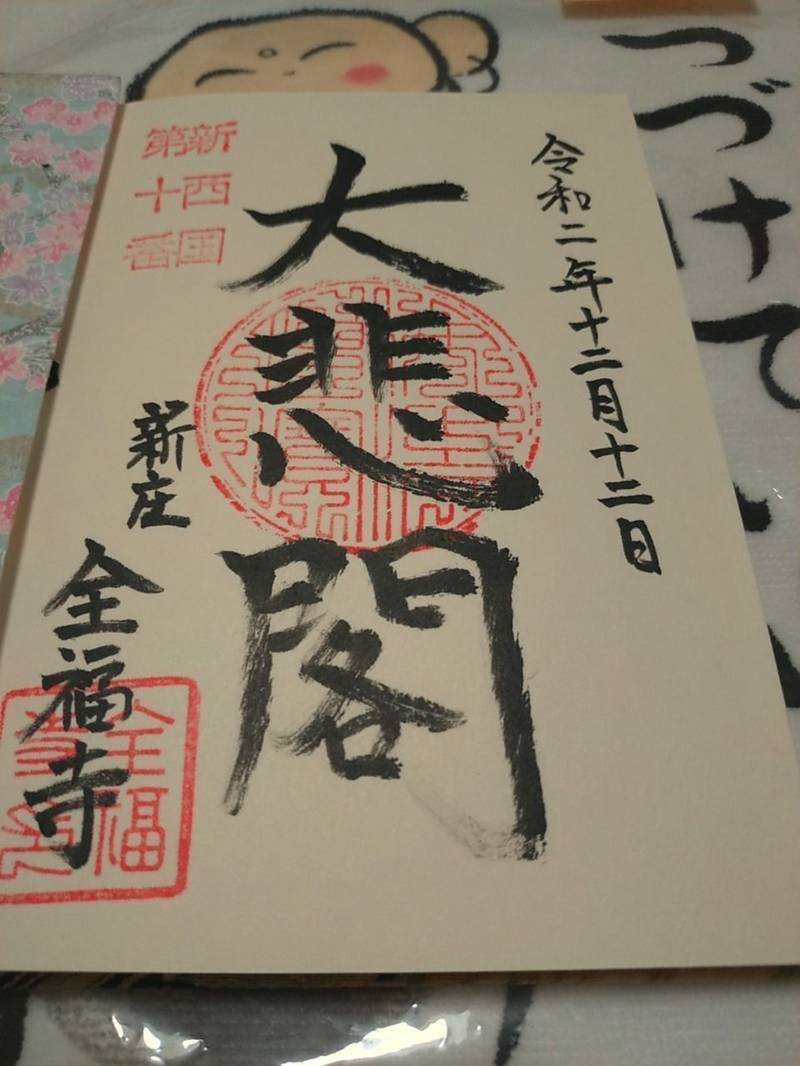 つづけて
令和二年十二月十二日
大悲閣
新西国
第十番
新庄
全福寺
全福
寺印